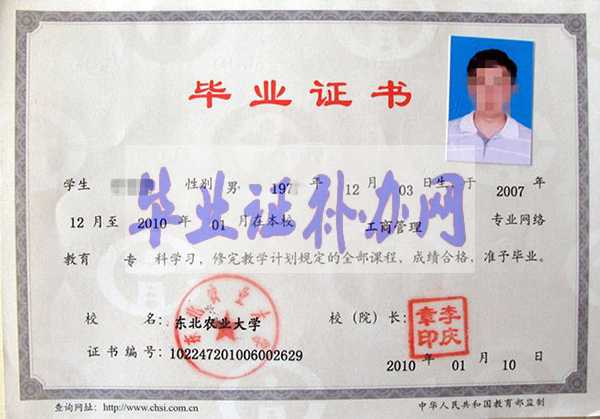 毕业证书
学生 性别 男 197 年 12 月 03 日生,于 2007 年
12 月至 2010 年 01 月在本校 工商管理 专业网络
教育 专 科学习,修完教学计划规定的全部课程,成绩合格,准予毕业。
毕业证补办网
校 名:东北农业大学 校(院)长:
东北农业大学
李庆章印
证书编号:102247201006002629 2010 年 01 月 10 日
查询网址:http://www.chsi.com.cn 中华人民共和国教育部监制